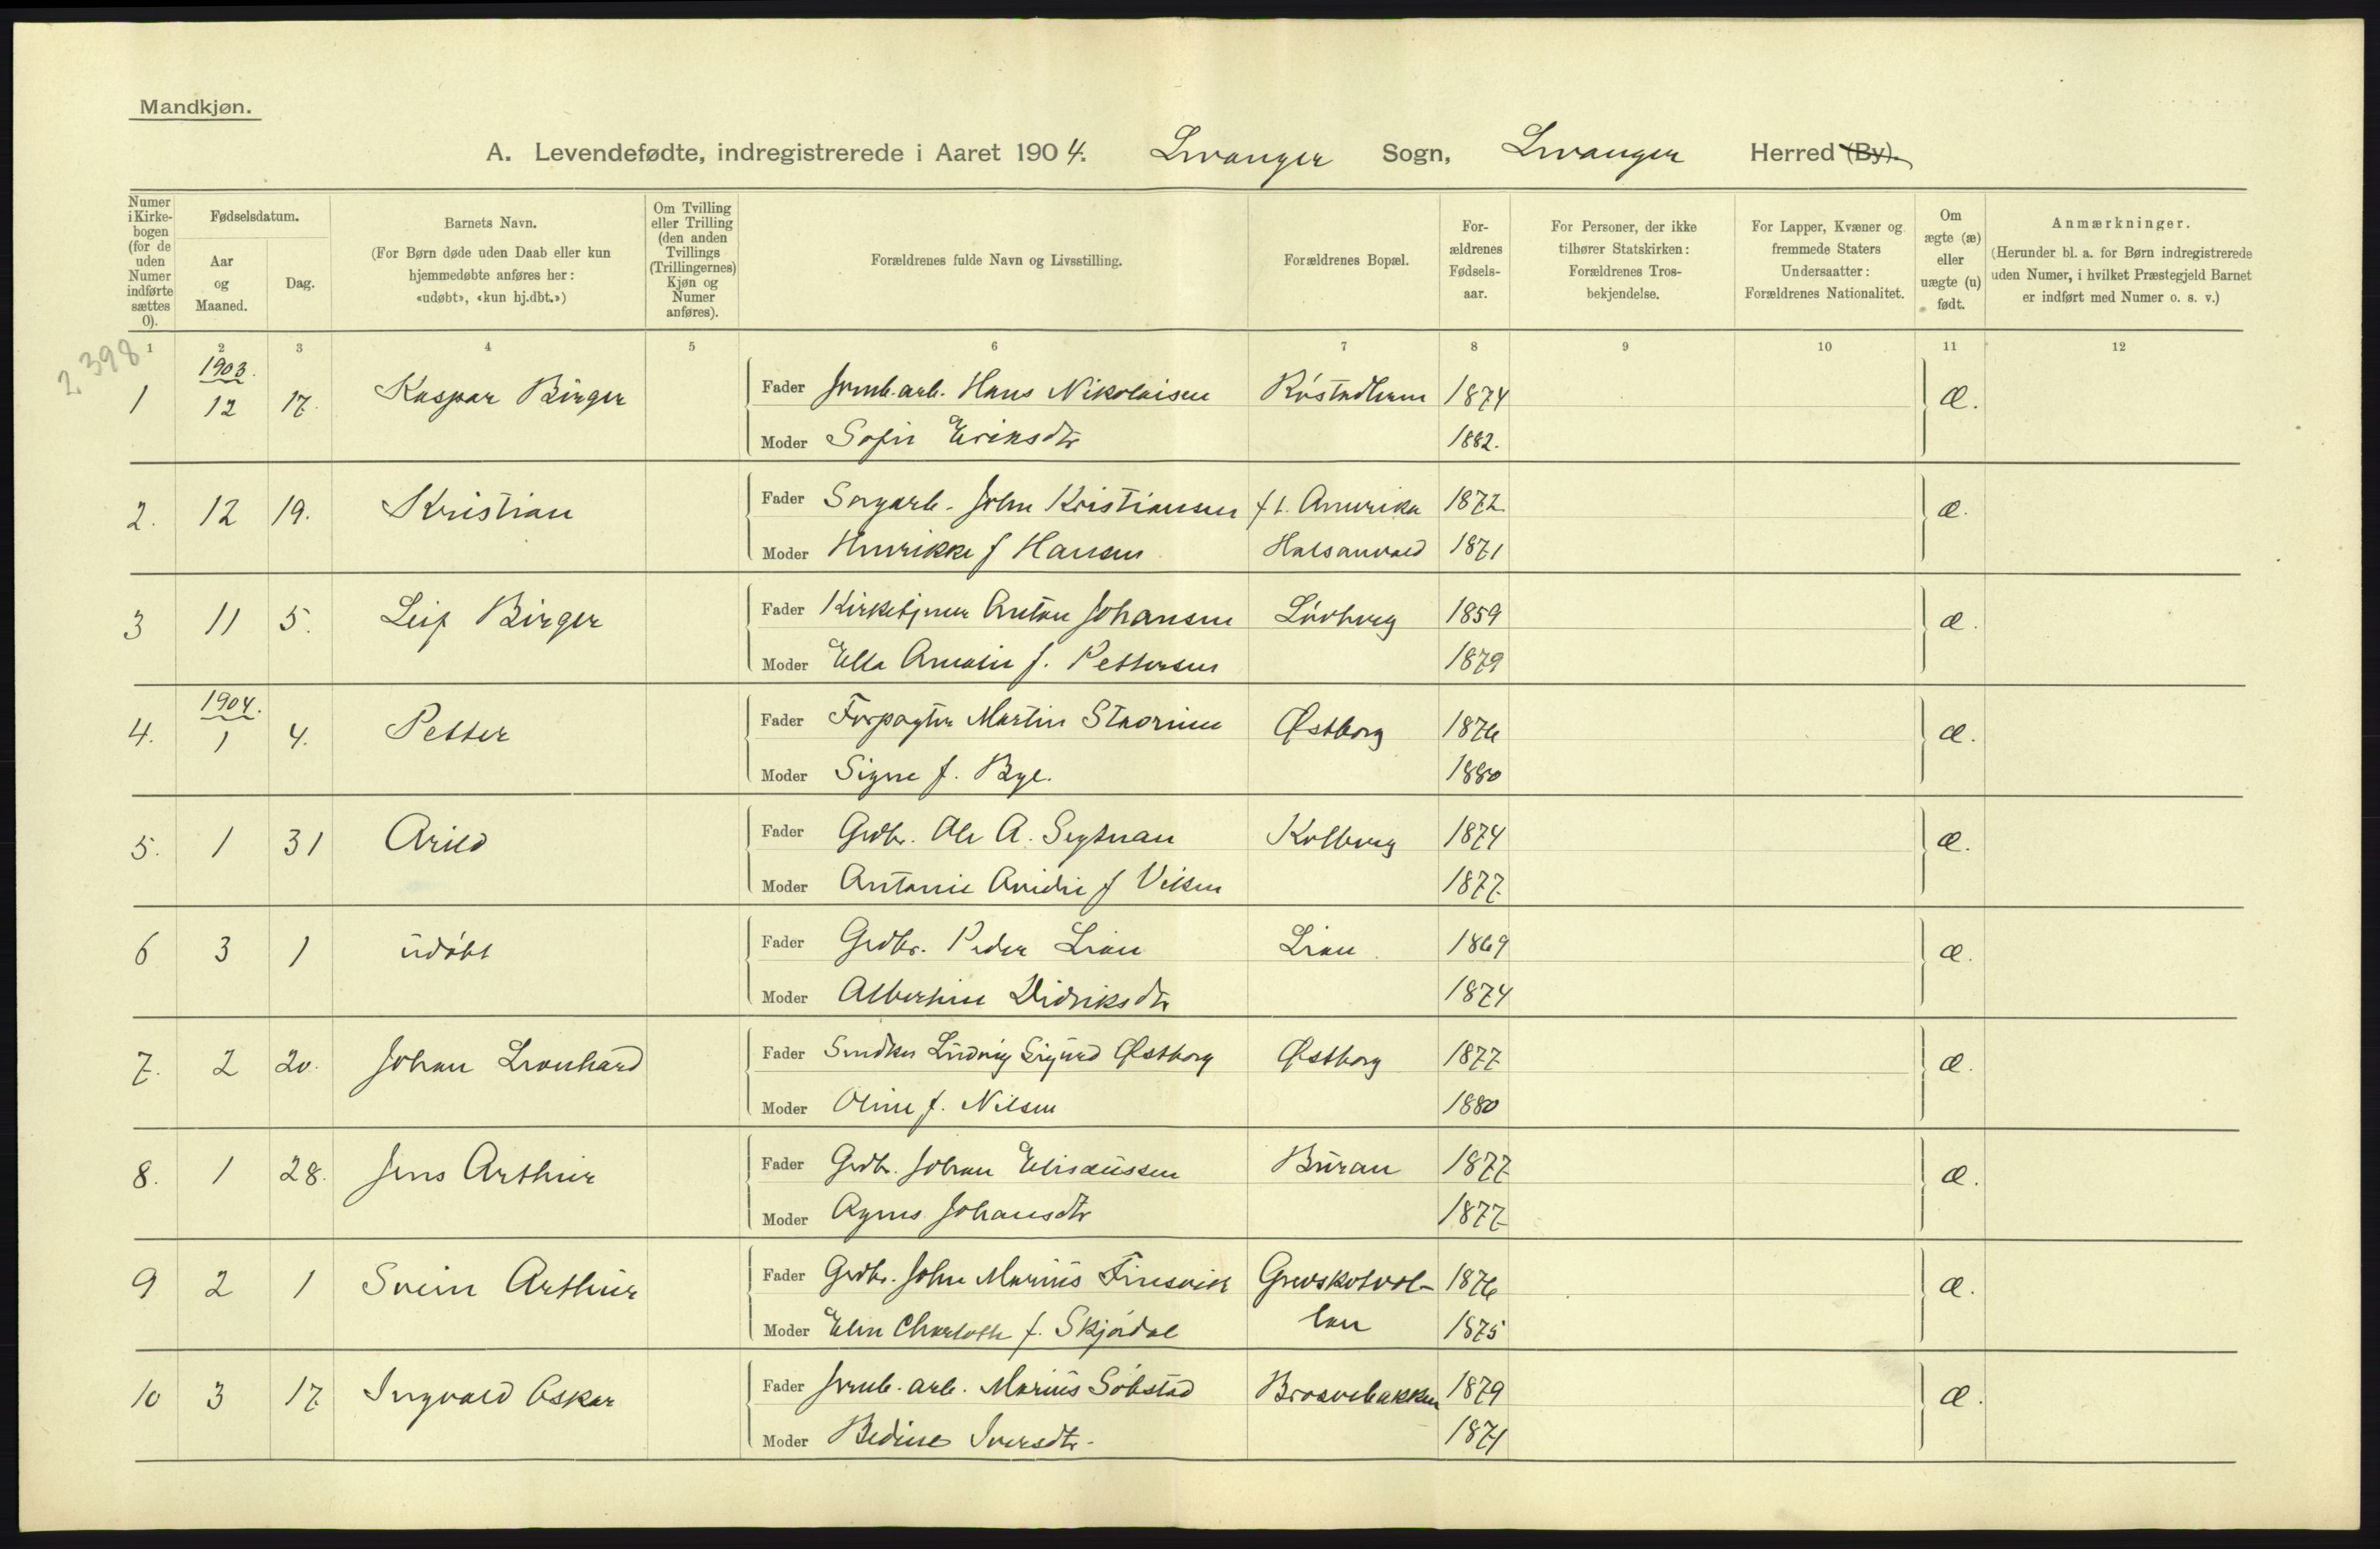 Mandkjøn.
A. Levendefødte, indregistrerede i Aaret 1904. Levanger Sogn, Levanger Herred (By).
Numer i Kirke- bogen (for de uden Numer indførte sættes 0).
Fødselsdatum.
Aar og Maaned.
Dag.
Barnets Navn.
(For Børn døde uden Daab eller kun hjemmedøbte anføres her: «udøbt», «kun hj.dbt.»)
Om Tvilling eller Trilling (den anden Tvillings (Trillingernes) Kjøn og Numer anføres).
Forældrenes fulde Navn og Livsstilling.
Forældrenes Bopæl.
For- ældrenes Fødsels- aar.
For Personer, der ikke tilhører Statskirken: Forældrenes Tros- bekjendelse.
For Lapper, Kvæner og fremmede Staters Undersaatter: Forældrenes Nationalitet.
Om ægte (æ) eller uægte (u) født.
Anmærkninger.
(Herunder bl. a. for Børn indregistrerede uden Numer, i hvilket Præstegjeld Barnet er indført med Numer o. s. v.)
1 2 3 4 5 6 7 8 9 10 11 12
2398
1903.
1 12 17. Kaspar Birger Fader Jernb.arb. Hans Nikolaisen 1874 æ.
Moder Sofie Eriksdtr 1882.
2. 12 19. Kristian Fader John Kristiansen f. t. Amerika 1872 æ.
Moder Henrikke f Hansen 1871
3 11 5. Leif Birger Fader Kirketjener Anton Johansen Løvberg 1859 æ.
Moder Ella Amalie f. Pettersen 1879
1904.
4. 1 4. Petter Fader Forpagter Martin Østborg 1876 æ.
Moder Signe f. Bye. 1880
5. 1 31 Arild Fader Grdbr. Ole A. Segtnan Kolberg 1874 æ.
Moder Antonie f 1877
6 3 1 udøbt Fader Grdbr. Peder Lian Lian 1869 æ.
Moder Albertine Didriksdtr 1874
7. 2 20. Johan Leonhard Fader Snedker Ludvig Sigurd Østborg Østborg 1877 æ.
Moder Oline f. Nilsen 1880
8. 1 28. Jens Arthur Fader Grdbr. Johan Elisæussen Buran 1877 æ.
Moder Agnes Johansdtr 1877
9 2 1 Svein Arthur Fader Grdbr. John Marius Finsvik Grevskotvol- 1876 æ.
Moder Elen Charlotte f. Skjørdal len 1875
10 3 17 Ingvald Oskar Fader Jernb. arb. Marius Søbstad 1879 æ.
Moder Bedine Iversdtr. 1871